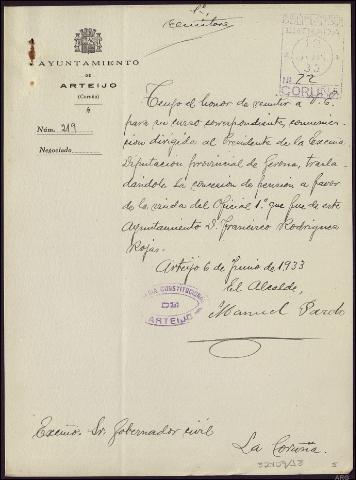 1º
Secretaría
ENTRADA
33
Nº 22
CORUÑA
AYUNTAMIENTO
DE
ARTEIJO
(Coruña)
Núm. 219
Negociado
Tengo el honor de remitir a V.E.
para su curso correspondiente, comunica-
cion dirigida al Presidente de la Excma
Diputacion provincial de Gerona, trasla-
dándole la concesion de pensión a favor
de la viuda del Oficial 1º que fue de este
Ayuntamiento D. Francisco Rodriguez
Rojas.
Arteijo 6 de Junio de 1933
El Alcalde,
Manuel Pardo
CONSTITUCIONAL
DE
ARTEIJO
Excmo. Sr. Gobernador civil
La Coruña.
5
ARG